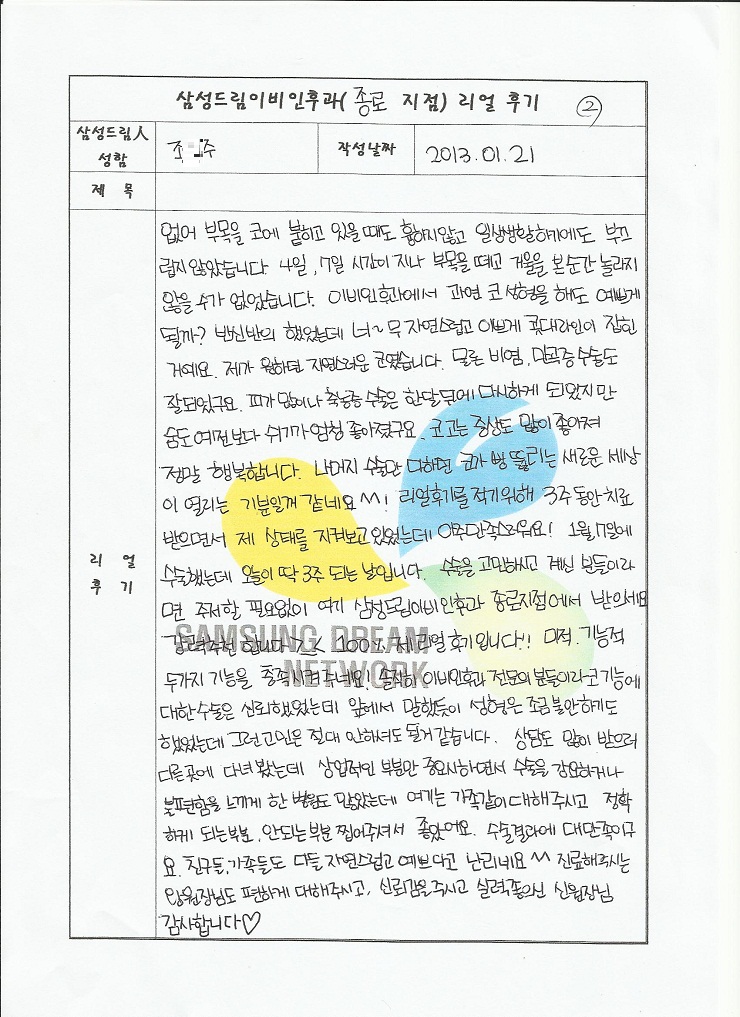 삼성드림이비인후과(종로 지점) 리얼 후기 ②
삼성드림人 성함
조 주
작성날짜
2013.01.21
제 목
리 얼 후 기
없어 부목을 코에 붙히고 있을때도 흉하지않고 일상생활하기에도 부끄
럽지않았습니다 4일, 7일 시간이 지나 부목을 떼고 거울을 본순간 놀라지
않을 수가 없었습니다. 이비인후과에서 과연 코성형을 해도 예쁘게
될까? 반신반의 했었는데 너~무 자연스럽고 이쁘게 콧대라인이 잡힌
거예요. 제가 원하던 자연스러운 코였습니다. 물론 비염, 만곡증수술도
잘되었구요. 피가 많이나 축농증 수술은 한달뒤에 다시하게 되었지만
숨도 예전보다 쉬기가 엄청 좋아졌구요. 코고는 증상도 많이 좋아져
정말 행복합니다. 나머지 수술만 다하면 코가 뻥 뚫리는 새로운 세상
이 열리는 기분일꺼 같네요^^! 리얼후기를 적기위해 3주동안 치료
받으면서 제 상태를 지켜보고 있었는데 아주만족스러워요! 1월,7일에
수술했는데 오늘이 딱 3주 되는 날입니다. 수술을 고민하시고 계신 분들이라
면 주저할 필요없이 여기 삼성드림이비인후과 종로지점에서 받으세요
강력추천 합니다 ㅋㅋ 100% 제 리얼 후기입니다!! 미적, 기능적
두가지 기능을 충족시켜주네요! 솔직히 이비인후과 전문의 분들이라 코기능에
대한수술은 신뢰했었는데 앞에서 말했듯이 성형은 조금 불안하기도
했었는데 그런고민은 절대 안하셔도 될거 같습니다. 상담도 많이 받으러
다른곳에 다녀봤는데 상업적인 부분만 중요시하면서 수술을 강요하거나
불편함을 느끼게 한 병원도 많았는데 여기는 가족같이 대해주시고 정확
하게 되는부분, 안되는부분 찝어주셔서 좋았어요. 수술결과에 대만족이구
요. 친구들,가족들도 다들 자연스럽고 예쁘다고 난리네요^^ 진료해주시는
원장님도 편하게 대해주시고, 신뢰감을 주시고 실력좋으신 신원장님
감사합니다♡
SAMSUNG DREAM
NETWORK